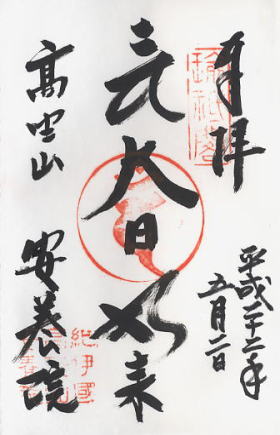 奉拝
平成二十二年
五月二日
大日如来
高野山 安養院
紀伊國